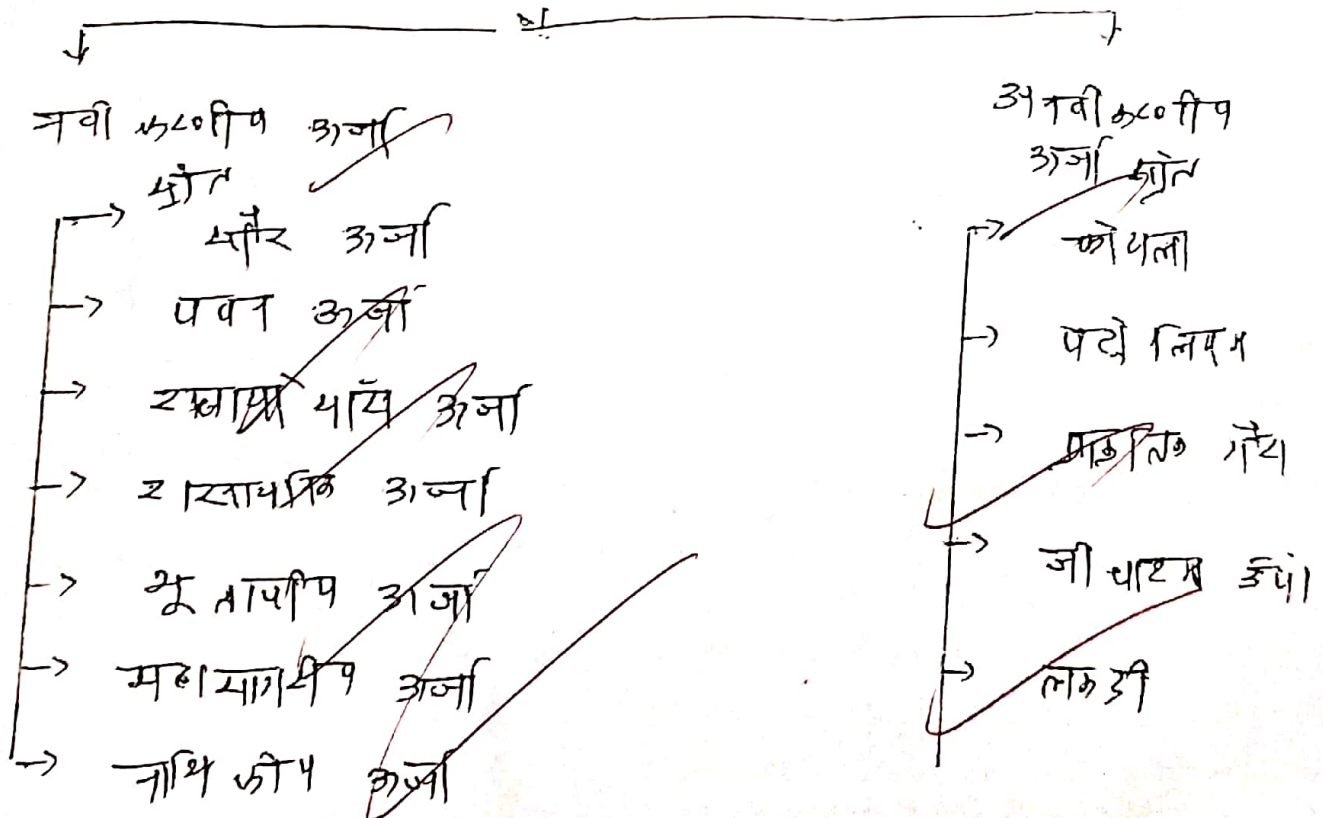 नवीकरणीय ऊर्जा
स्रोत
सौर ऊर्जा
पवन ऊर्जा
ऊर्जा
रासायनिक ऊर्जा
भू तापीय ऊर्जा
महासागरीय ऊर्जा
नाभिकीय ऊर्जा
अनवीकरणीय
ऊर्जा स्रोत
कोयला
पेट्रोलियम
प्राकृतिक गैस
जीवाश्म
लकडी